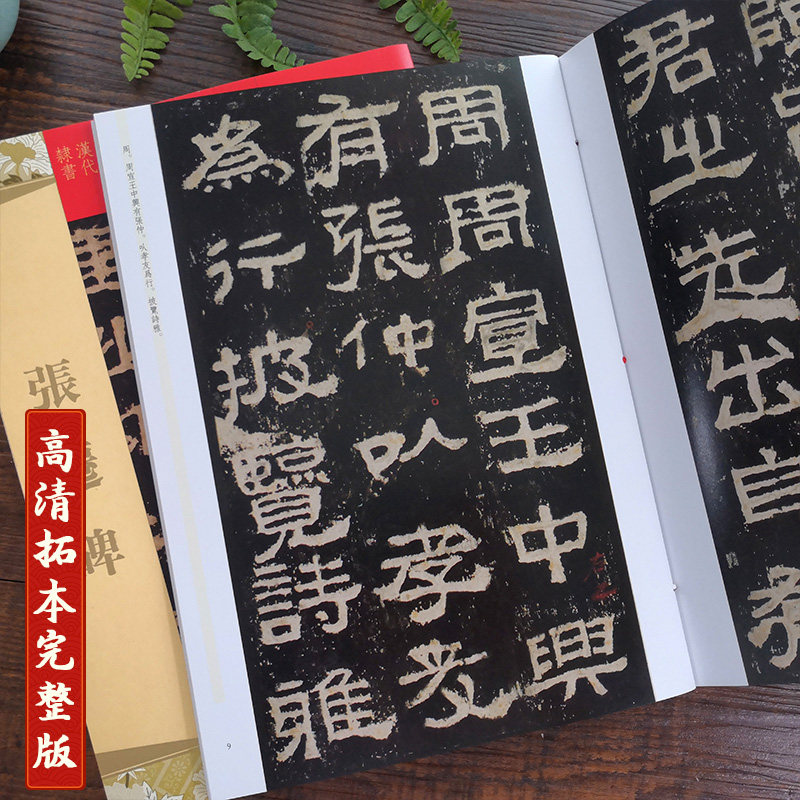 君之先出自
周周宣王中興
有張仲㕥孝友
為行披覽詩雅
周。周宣王中興有張仲。㕥孝友爲行。披覽詩雅。
9
漢代
隸書
張遷碑
高清拓本完整版